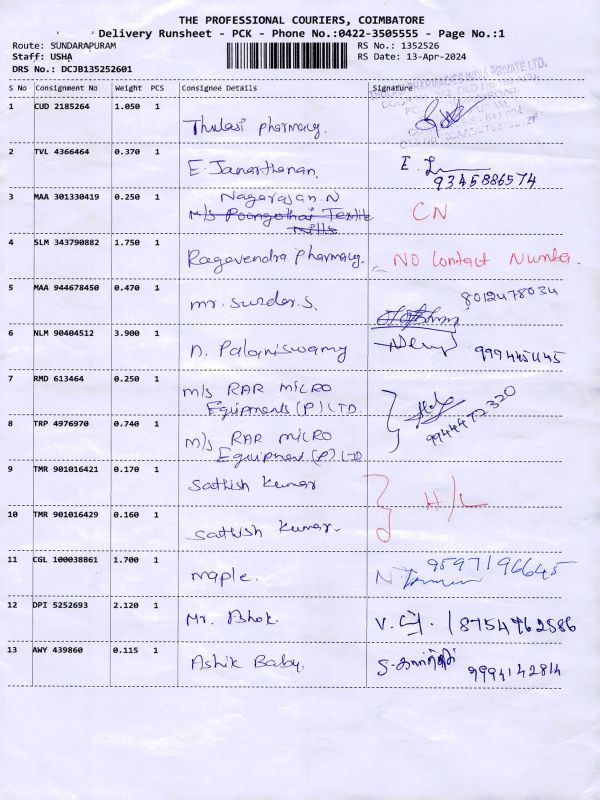 THE PROFESSIONAL COURIERS, COIMBATORE
Delivery Runsheet - PCK - Phone No.:0422-3505555 - Page No.:1
Route: SUNDARAPURAM
Staff: USHA
DRS No.: DCJB135252601
RS No.: 1352526
RS Date: 13-Apr-2024
S No Consignment No Weight PCS Consignee Details Signature
1 CUD 2185264 1.050 1
Thulasi pharmacy.
2 TVL 4366464 0.370 1
E. Janarthanan. E.
9345886574
3 MAA 301330419 0.250 1
Nagarajan.N
M/s Poongothai Textile CN
Mills
4 SLM 343790882 1.750 1
Ragavendra pharmacy. NO Contact Number.
5 MAA 944678450 0.470 1
mr. Sunder.S. 8012478034
6 NLM 90404512 3.900 1
n. Palaniswamy 999445445
7 RMD 613464 0.250 1
m/s RAR MICRO
Equipments (P) LTD.
8 TRP 4976970 0.740 1
9944472320
m/s RAR MICRO
Equipment (P) LTD
9 TMR 901016421 0.170 1
Sathish Kumar
H/L
10 TMR 901016429 0.160 1
Sathish Kumar.
11 CGL 100038861 1.700 1
maple. 9597196645
12 DPI 5252693 2.120 1
Mr. Ashok. 8754762586
13 AWY 439860 0.115 1
Ashik Baby. 9994142814